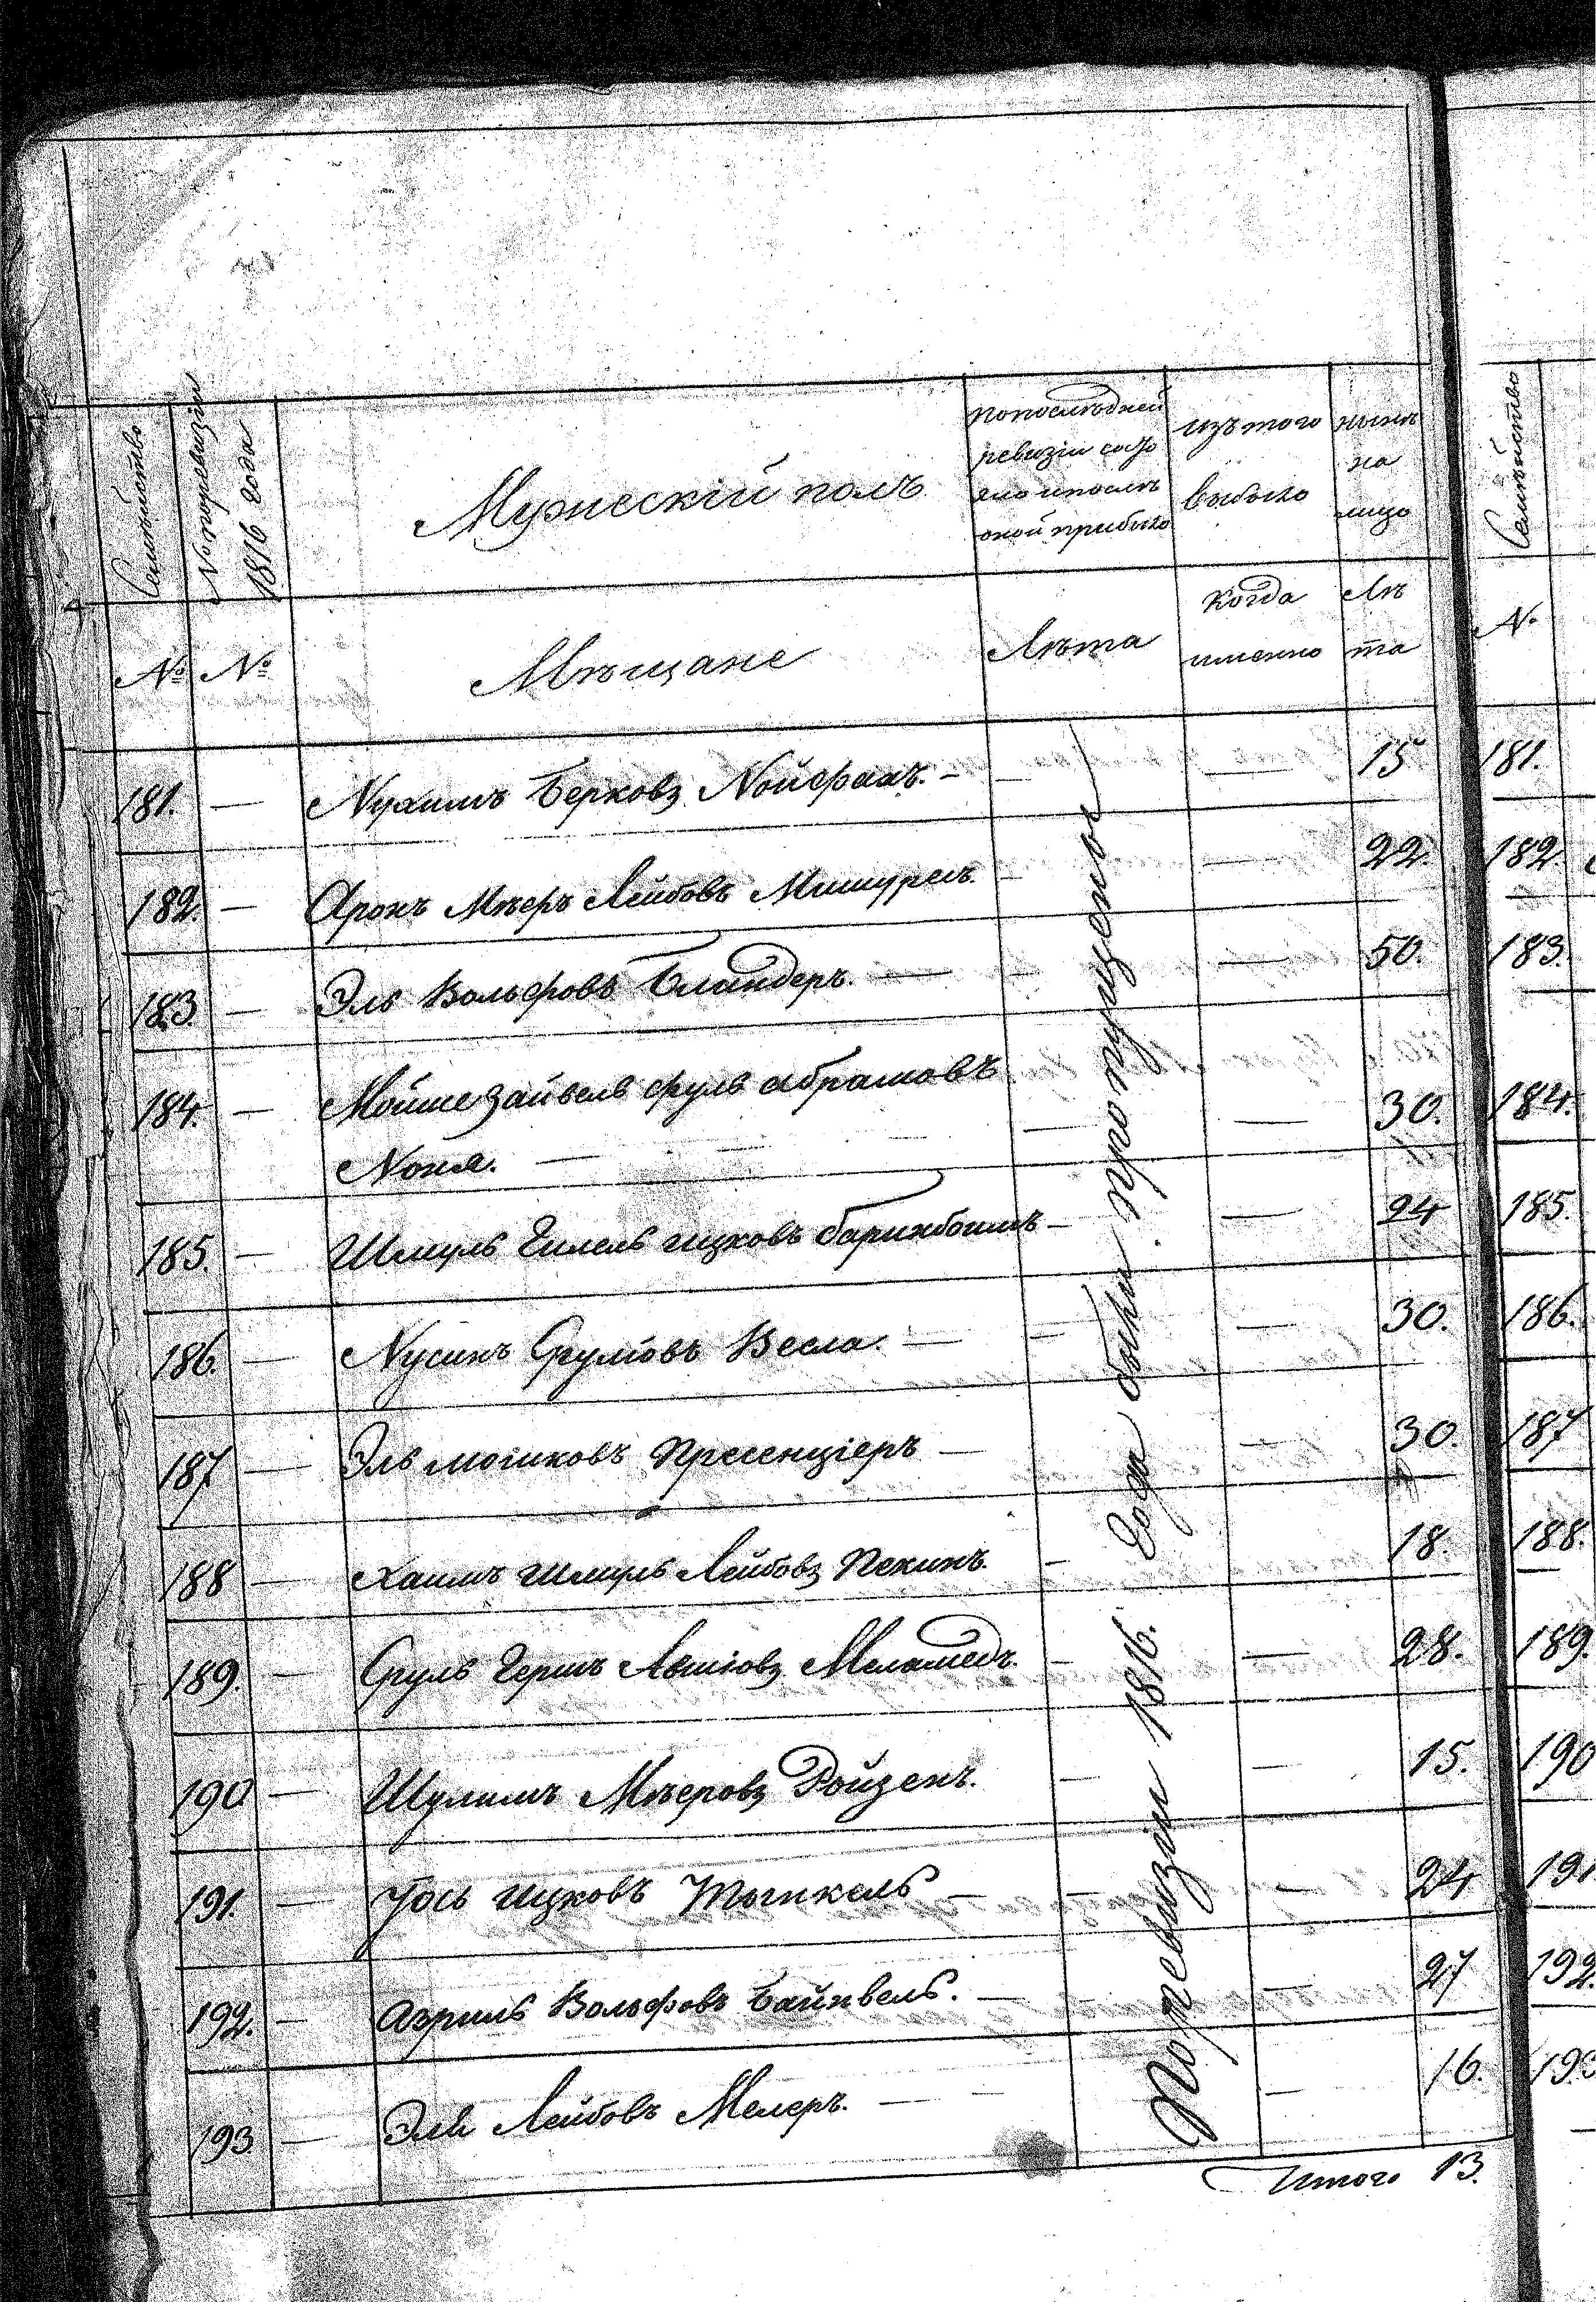 Семѣйство
№ по ревизіи 1816 года
Мужескій полъ
по послѣдней
ревизіи состо
яло и послѣ
оной прибыло
изъ того
выбыло
нынѣ
на
лицо
Семѣйство
№ №
Мѣщане
Лѣта
когда
именно
Лѣ
та
№
181. — Нухимъ Берковъ Нойфахъ. — — — 15 181.
182. — Аронъ Мѣеръ Лейбовъ Мишурелъ. — — 22. 182.
183 — Эль Вольфовъ Бландеръ. — — — 50. 183.
184. — Мойше Зайвель Сруль Абрамовъ
Ноня. — — — 30. 184.
185. — Шмуль Гилель Ицковъ Баринбоимъ — — 24 185.
186. — Нусинъ Срулювъ Весла. — — — 30. 186.
187 — Эль Мошковъ Пресенціеръ — — 30. 187
188 — Хаимъ Шмуль Лейбовъ Пекинъ. — 18. 188.
189. — Сруль Гершъ Авшіовъ Меламедъ. — — 28. 189.
190 — Шулимъ Мѣеровъ Ройзенъ. — — 15. 190
191. — Іось Ицковъ — — — 24 191
192. — Азриль Вольфовъ Байнвель. — — — 27 192.
193 — Эль Лейбовъ Мелеръ. — — — 16. 193
По ревизіи 1816. года были пропущены
Итого 13.